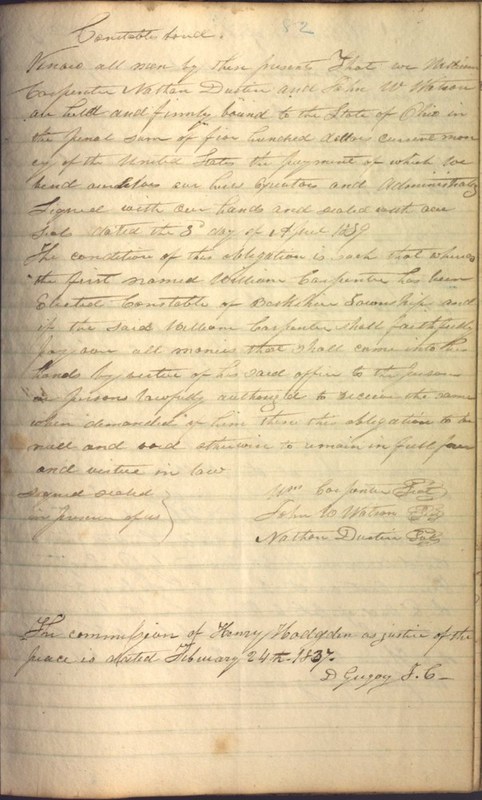 82
Constables bond.
Know all men by these present That we William
Carpenter Nathan Dustin and John W Watson
are held and firmly bound to the State of Ohio in
the penal sum of five hundred dollars current mon
ey of the United States the payment of which we
bend ourselves our heirs Executors and Administrators
Signed with our hands and sealed with our
Seals dated the 8 day of April 1839
The condition of this obligation is such that whereas
the first named William Carpenter has been
Elected Constable of Berkshire Township and
if the said William Carpenter shall faithfully
pay over all monies that shall come into his
hands by virtue of his said office to the person
or persons lawfully authorized to receive the same
when demanded of him then this obligation to be
null and void otherwise to remain in full force
and virtue in law
signed sealed
in presence of us
Wm Carpenter Seal
John W Watson Seal
Nathan Dustin Seal
The commission of Henry Hodgden as justice of the
peace is dated February 24th 1837.
D Gregory T. C